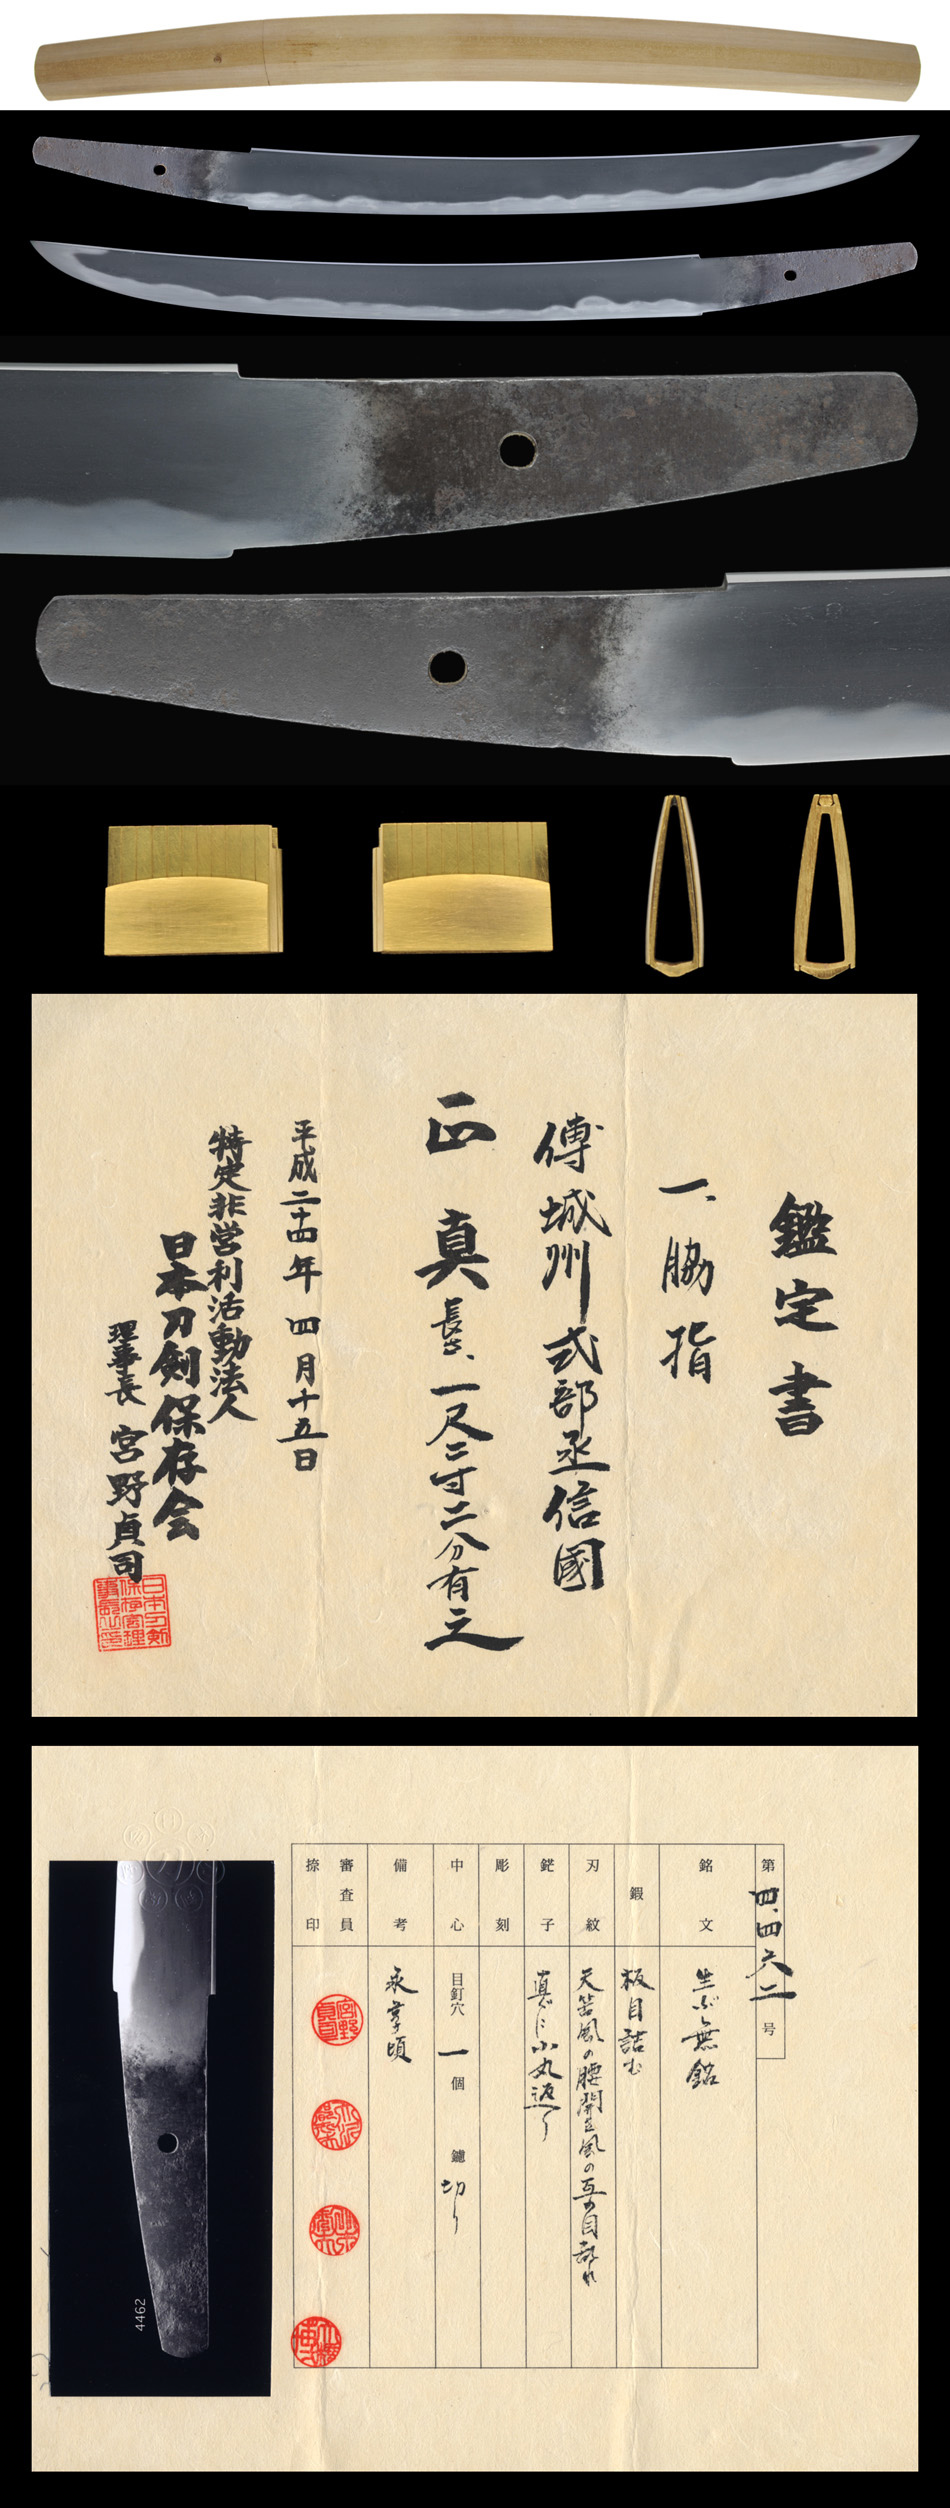 鑑定書
一、脇指
傳城州式部丞信國
正真 長さ、一尺二寸二分有之
平成二十四年四月十五日
特定非営利活動法人
日本刀剣保存会
理事長 宮野貞司
第四、四六二号
銘文 生ぶ無銘
鍜 板目詰む
刃紋
鋩子 直ぐに小丸返り
彫刻
中心 目釘穴 一個 鑢 切り
備考 永享頃
審査員
捺印
4462